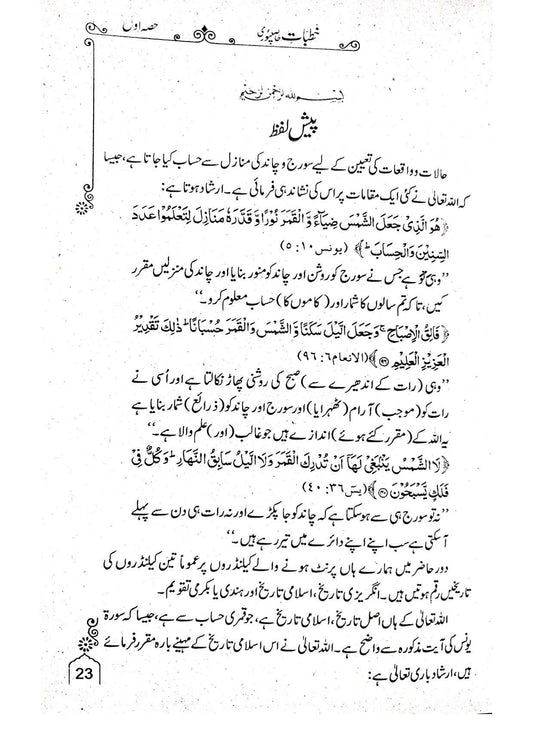 خطباتِ حاصلپوری حصہ اول
بسم اللہ الرحمن الرحیم
پیش لفظ
حالات و واقعات کی تعیین کے لیے سورج و چاند کی منازل سے حساب کیا جاتا ہے، جیسا
کہ اللہ تعالیٰ نے کئی ایک مقامات پر اس کی نشاندہی فرمائی ہے۔ ارشاد ہوتا ہے:
﴿هُوَ الَّذِیْ جَعَلَ الشَّمْسَ ضِیَآءً وَّ الْقَمَرَ نُوْرًا وَّ قَدَّرَهٗ مَنَازِلَ لِتَعْلَمُوْا عَدَدَ
السِّنِیْنَ وَالْحِسَابَ ؕ﴾ (یونس ۱۰: ۵)
’’وہی تو ہے جس نے سورج کو روشن اور چاند کو منور بنایا اور چاند کی منزلیں مقرر
کیں، تاکہ تم سالوں کا شمار اور (کاموں کا) حساب معلوم کرو۔‘‘
﴿فَالِقُ الْاِصْبَاحِ ۚ وَجَعَلَ الَّیْلَ سَكَنًا وَّ الشَّمْسَ وَالْقَمَرَ حُسْبَانًا ؕ ذٰلِكَ تَقْدِیْرُ
الْعَزِیْزِ الْعَلِیْمِ ۝۹۶﴾ (الانعام ۶: ۹۶)
’’وہی (رات کے اندھیرے سے) صبح کی روشنی پھاڑ نکالتا ہے اور اُسی نے
رات کو (موجب) آرام (ٹھہرایا) اور سورج اور چاند کو (ذرائع) شمار بنایا ہے
یہ اللہ کے (مقرر کئے ہوئے) اندازے ہیں جو غالب (اور) علم والا ہے۔‘‘
﴿لَا الشَّمْسُ یَنْۢبَغِیْ لَهَاۤ اَنْ تُدْرِكَ الْقَمَرَ وَلَا الَّیْلُ سَابِقُ النَّهَارِ ؕ وَكُلٌّ فِیْ
فَلَكٍ یَّسْبَحُوْنَ ۝۴۰﴾ (یٰسٓ ۳۶: ۴۰)
’’نہ تو سورج ہی سے ہوسکتا ہے کہ چاند کو جا پکڑے اور نہ رات ہی دن سے پہلے
آسکتی ہے سب اپنے اپنے دائرے میں تیر رہے ہیں۔‘‘
دورِ حاضر میں ہمارے ہاں پرنٹ ہونے والے کیلنڈروں پر عموماً تین کیلنڈروں کی
تاریخیں رقم ہوتیں ہیں۔ انگریزی تاریخ، اسلامی تاریخ اور ہندی یا بکرمی تقویم۔
اللہ تعالیٰ کے ہاں اصل تاریخ، اسلامی تاریخ ہے، جو قمری حساب سے ہے، جیسا کہ سورۃ
یونس کی آیت مذکورہ سے واضح ہے۔ اللہ تعالیٰ نے اس اسلامی تاریخ کے مہینے بارہ مقرر فرمائے
ہیں، ارشاد باری تعالیٰ ہے:
23